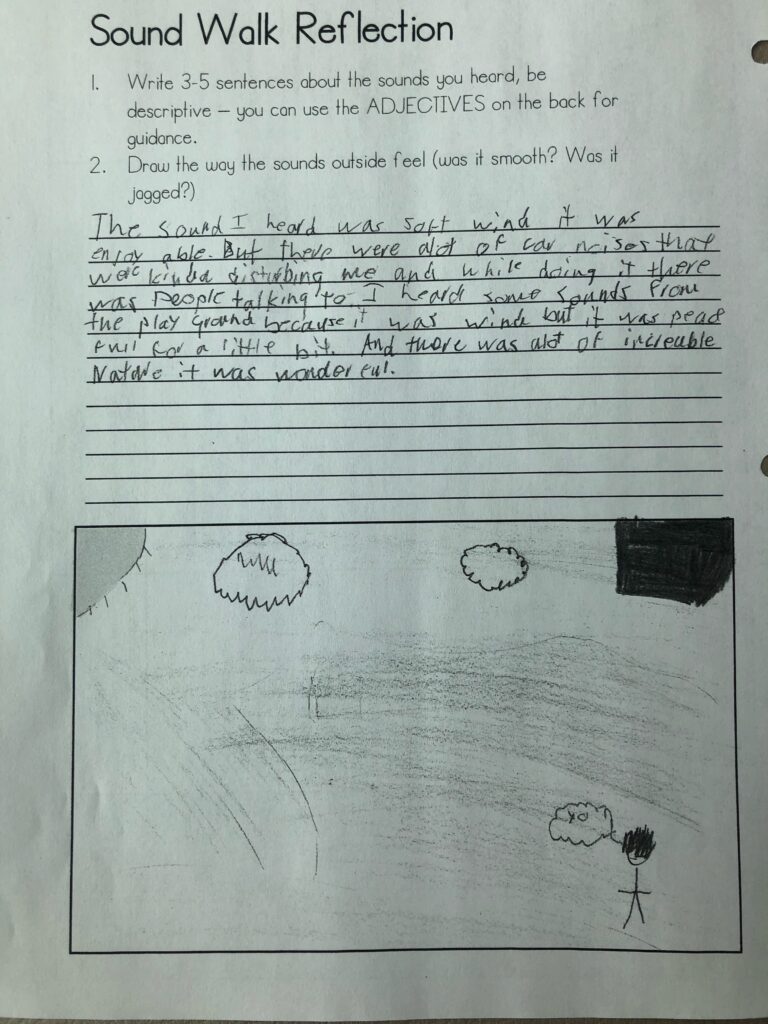 Sound Walk Reflection
1. Write 3-5 sentences about the sounds you heard, be
descriptive – you can use the ADJECTIVES on the back for
guidance.
2. Draw the way the sounds outside feel (was it smooth? Was it
jagged?)
The sound I heard was soft wind it was
enjoy able. But there were alot of car noises that
were kinda disturbing me and while doing it there
was people talking to I heard some sounds from
the play ground because it was winde but it was peac
full for a little bit. And there was alot of increable
Nature it was wonderful.
yo